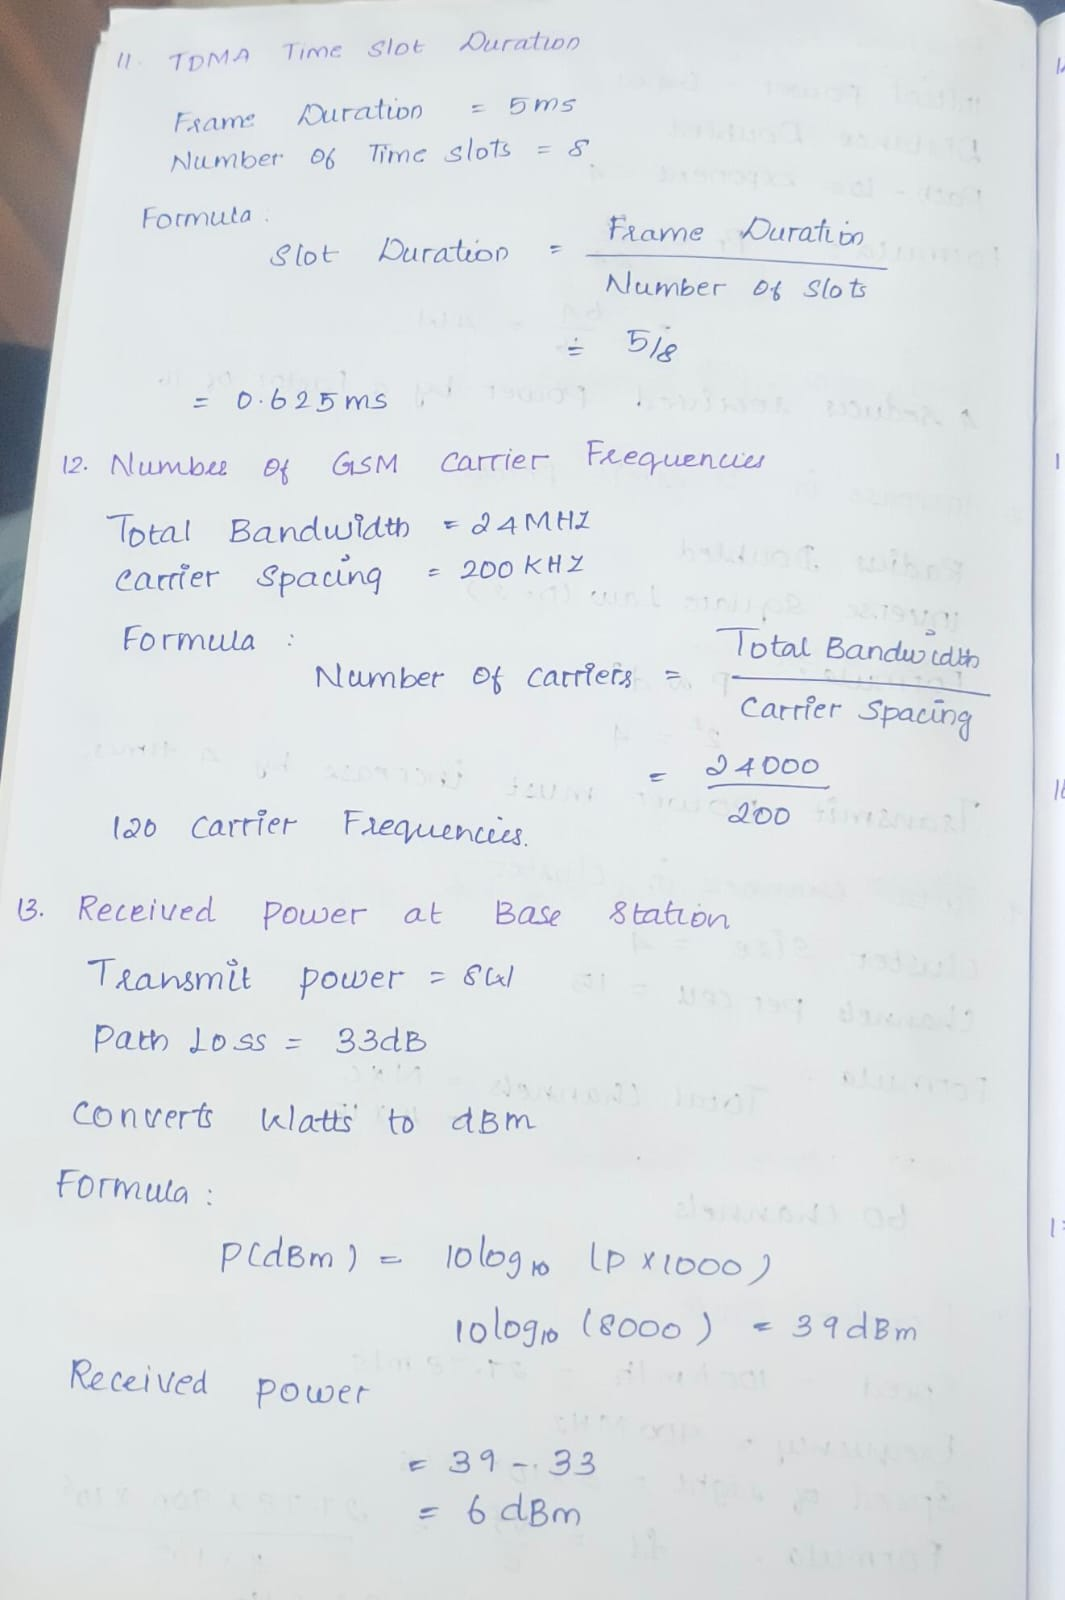 11. TDMA Time Slot Duration
Frame Duration = 5ms
Number Of Time slots = 8
Formula :
Slot Duration = Frame Duration
Number Of Slots
= 5/8
= 0.625ms
12. Number Of GSM Carrier Frequencies
Total Bandwidth = 24MHZ
Carrier Spacing = 200 KHZ
Formula :
Number Of Carriers = Total Bandwidth
Carrier Spacing
= 24000
200
120 Carrier Frequencies.
13. Received Power at Base Station
Transmit power = 8W
Path Loss = 33dB
Converts Watts to dBm
Formula :
P(dBm) = 10log10 (P x1000)
10log10 (8000) = 39dBm
Received power
= 39 - 33
= 6 dBm